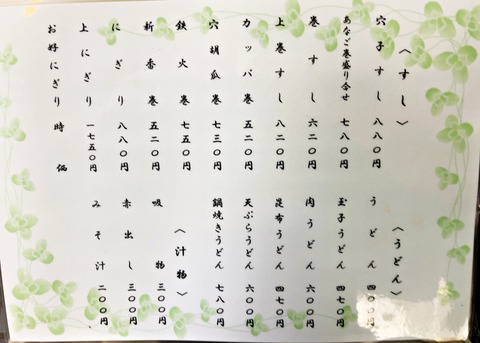 〈すし〉
穴子すし 八八〇円
あなご巻盛り合せ 七八〇円
巻すし 六二〇円
上巻すし 八二〇円
カッパ巻 五二〇円
穴胡瓜巻 七三〇円
鉄火巻 七五〇円
新香巻 五二〇円
にぎり 八八〇円
上にぎり 一七五〇円
お好にぎり 時価
〈うどん〉
うどん 四〇〇円
玉子うどん 四七〇円
肉うどん 六〇〇円
昆布うどん 四七〇円
天ぷらうどん 六〇〇円
鍋焼きうどん 七八〇円
〈汁物〉
吸物 三〇〇円
赤出し 三〇〇円
みそ汁 二〇〇円